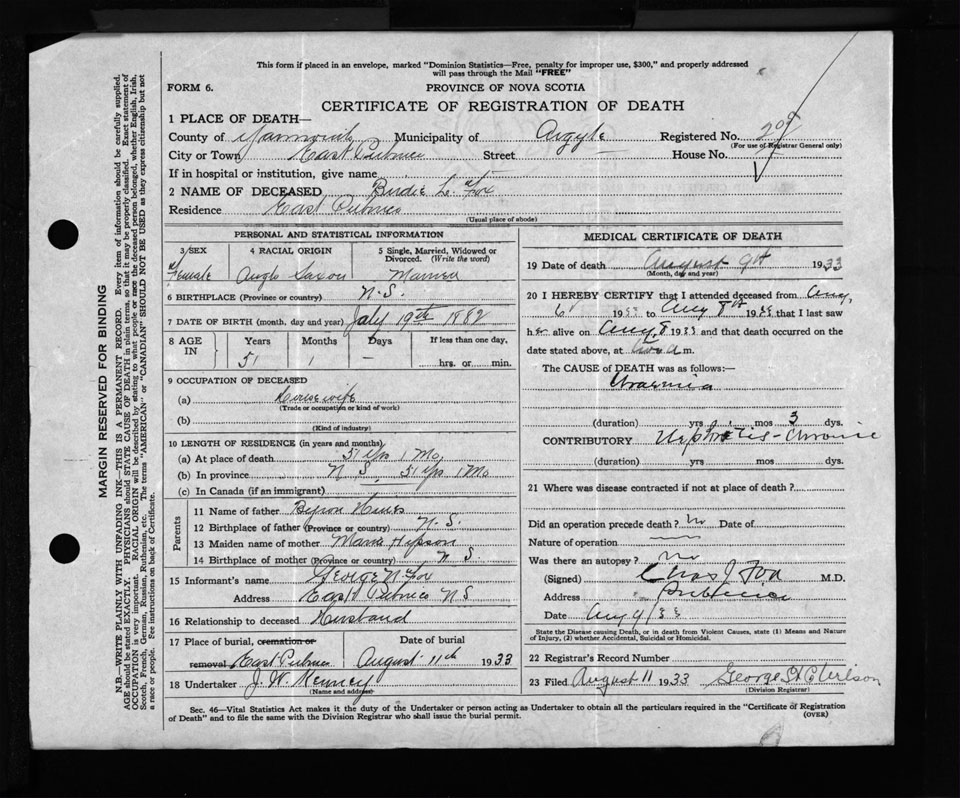 This form if placed in an envelope, marked "Dominion Statistics—Free, penalty for improper use, $300," and properly addressed
will pass through the Mail "FREE"
FORM 6.
PROVINCE OF NOVA SCOTIA
CERTIFICATE OF REGISTRATION OF DEATH
1 PLACE OF DEATH—
County of Yarmouth Municipality of Argyle Registered No. 209
(For use of Registrar General only)
City or Town East Pubnico Street — House No. —
If in hospital or institution, give name —
2 NAME OF DECEASED Birdie L. Fox
Residence East Pubnico
(Usual place of abode)
PERSONAL AND STATISTICAL INFORMATION
3 SEX Female
4 RACIAL ORIGIN Anglo Saxon
5 Single, Married, Widowed or Divorced. (Write the word) Married
6 BIRTHPLACE (Province or country) N.S.
7 DATE OF BIRTH (month, day and year) July 19th 1882
8 AGE IN Years 51 Months 1 Days — If less than one day, ...... hrs. or ...... min.
9 OCCUPATION OF DECEASED
(a) Housewife
(Trade or occupation or kind of work)
(b)
(Kind of industry)
10 LENGTH OF RESIDENCE (in years and months)
(a) At place of death 51 Yrs 1 Mo
(b) In province N S, 51 Yrs 1 Mo
(c) In Canada (if an immigrant)
Parents
11 Name of father Byron
12 Birthplace of father (Province or country) N.S.
13 Maiden name of mother Hipson
14 Birthplace of mother (Province or country) N S.
15 Informant's name George N. Fox
Address East Pubnico N S
16 Relationship to deceased Husband
17 Place of burial, cremation or removal East Pubnico Date of burial August 11th 1933
18 Undertaker J. W. Kenney
(Name and address)
MEDICAL CERTIFICATE OF DEATH
19 Date of death August 9th 1933
(Month, day and year)
20 I HEREBY CERTIFY that I attended deceased from Aug.
6 1933 to Aug 8th 1933 that I last saw
her alive on Aug 8 1933 and that death occurred on the
date stated above, at m.
The CAUSE of DEATH was as follows:—
Uraemia
(duration) yrs mos 3 dys.
CONTRIBUTORY Nephritis - Chronic
(duration) yrs mos dys.
21 Where was disease contracted if not at place of death?
Did an operation precede death? No Date of
Nature of operation —
Was there an autopsy? No
(Signed) Chas J Fox M.D.
Address Pubnico
Date Aug 9/33
State the Disease causing Death, or in death from Violent Causes, state (1) Means and Nature
of Injury, (2) whether Accidental, Suicidal or Homicidal.
22 Registrar's Record Number
23 Filed August 11 1933 George
(Division Registrar)
Sec. 46—Vital Statistics Act makes it the duty of the Undertaker or person acting as Undertaker to obtain all the particulars required in the "Certificate of Registration
of Death" and to file the same with the Division Registrar who shall issue the burial permit.
(OVER)
MARGIN RESERVED FOR BINDING
N.B.—WRITE PLAINLY WITH UNFADING INK—THIS IS A PERMANENT RECORD. Every item of information should be carefully supplied.
AGE should be stated EXACTLY. PHYSICIANS should STATE CAUSE OF DEATH in plain terms, so that it may be properly classified. Exact statement of
OCCUPATION is very important. RACIAL ORIGIN will be described by stating to what people or race the deceased person belonged, whether English, Irish,
Scotch, French, German, Russian, Ruthenian, etc. The terms "AMERICAN" or "CANADIAN" SHOULD NOT BE USED as they express citizenship but not
a race or people. See instructions on back of Certificate.